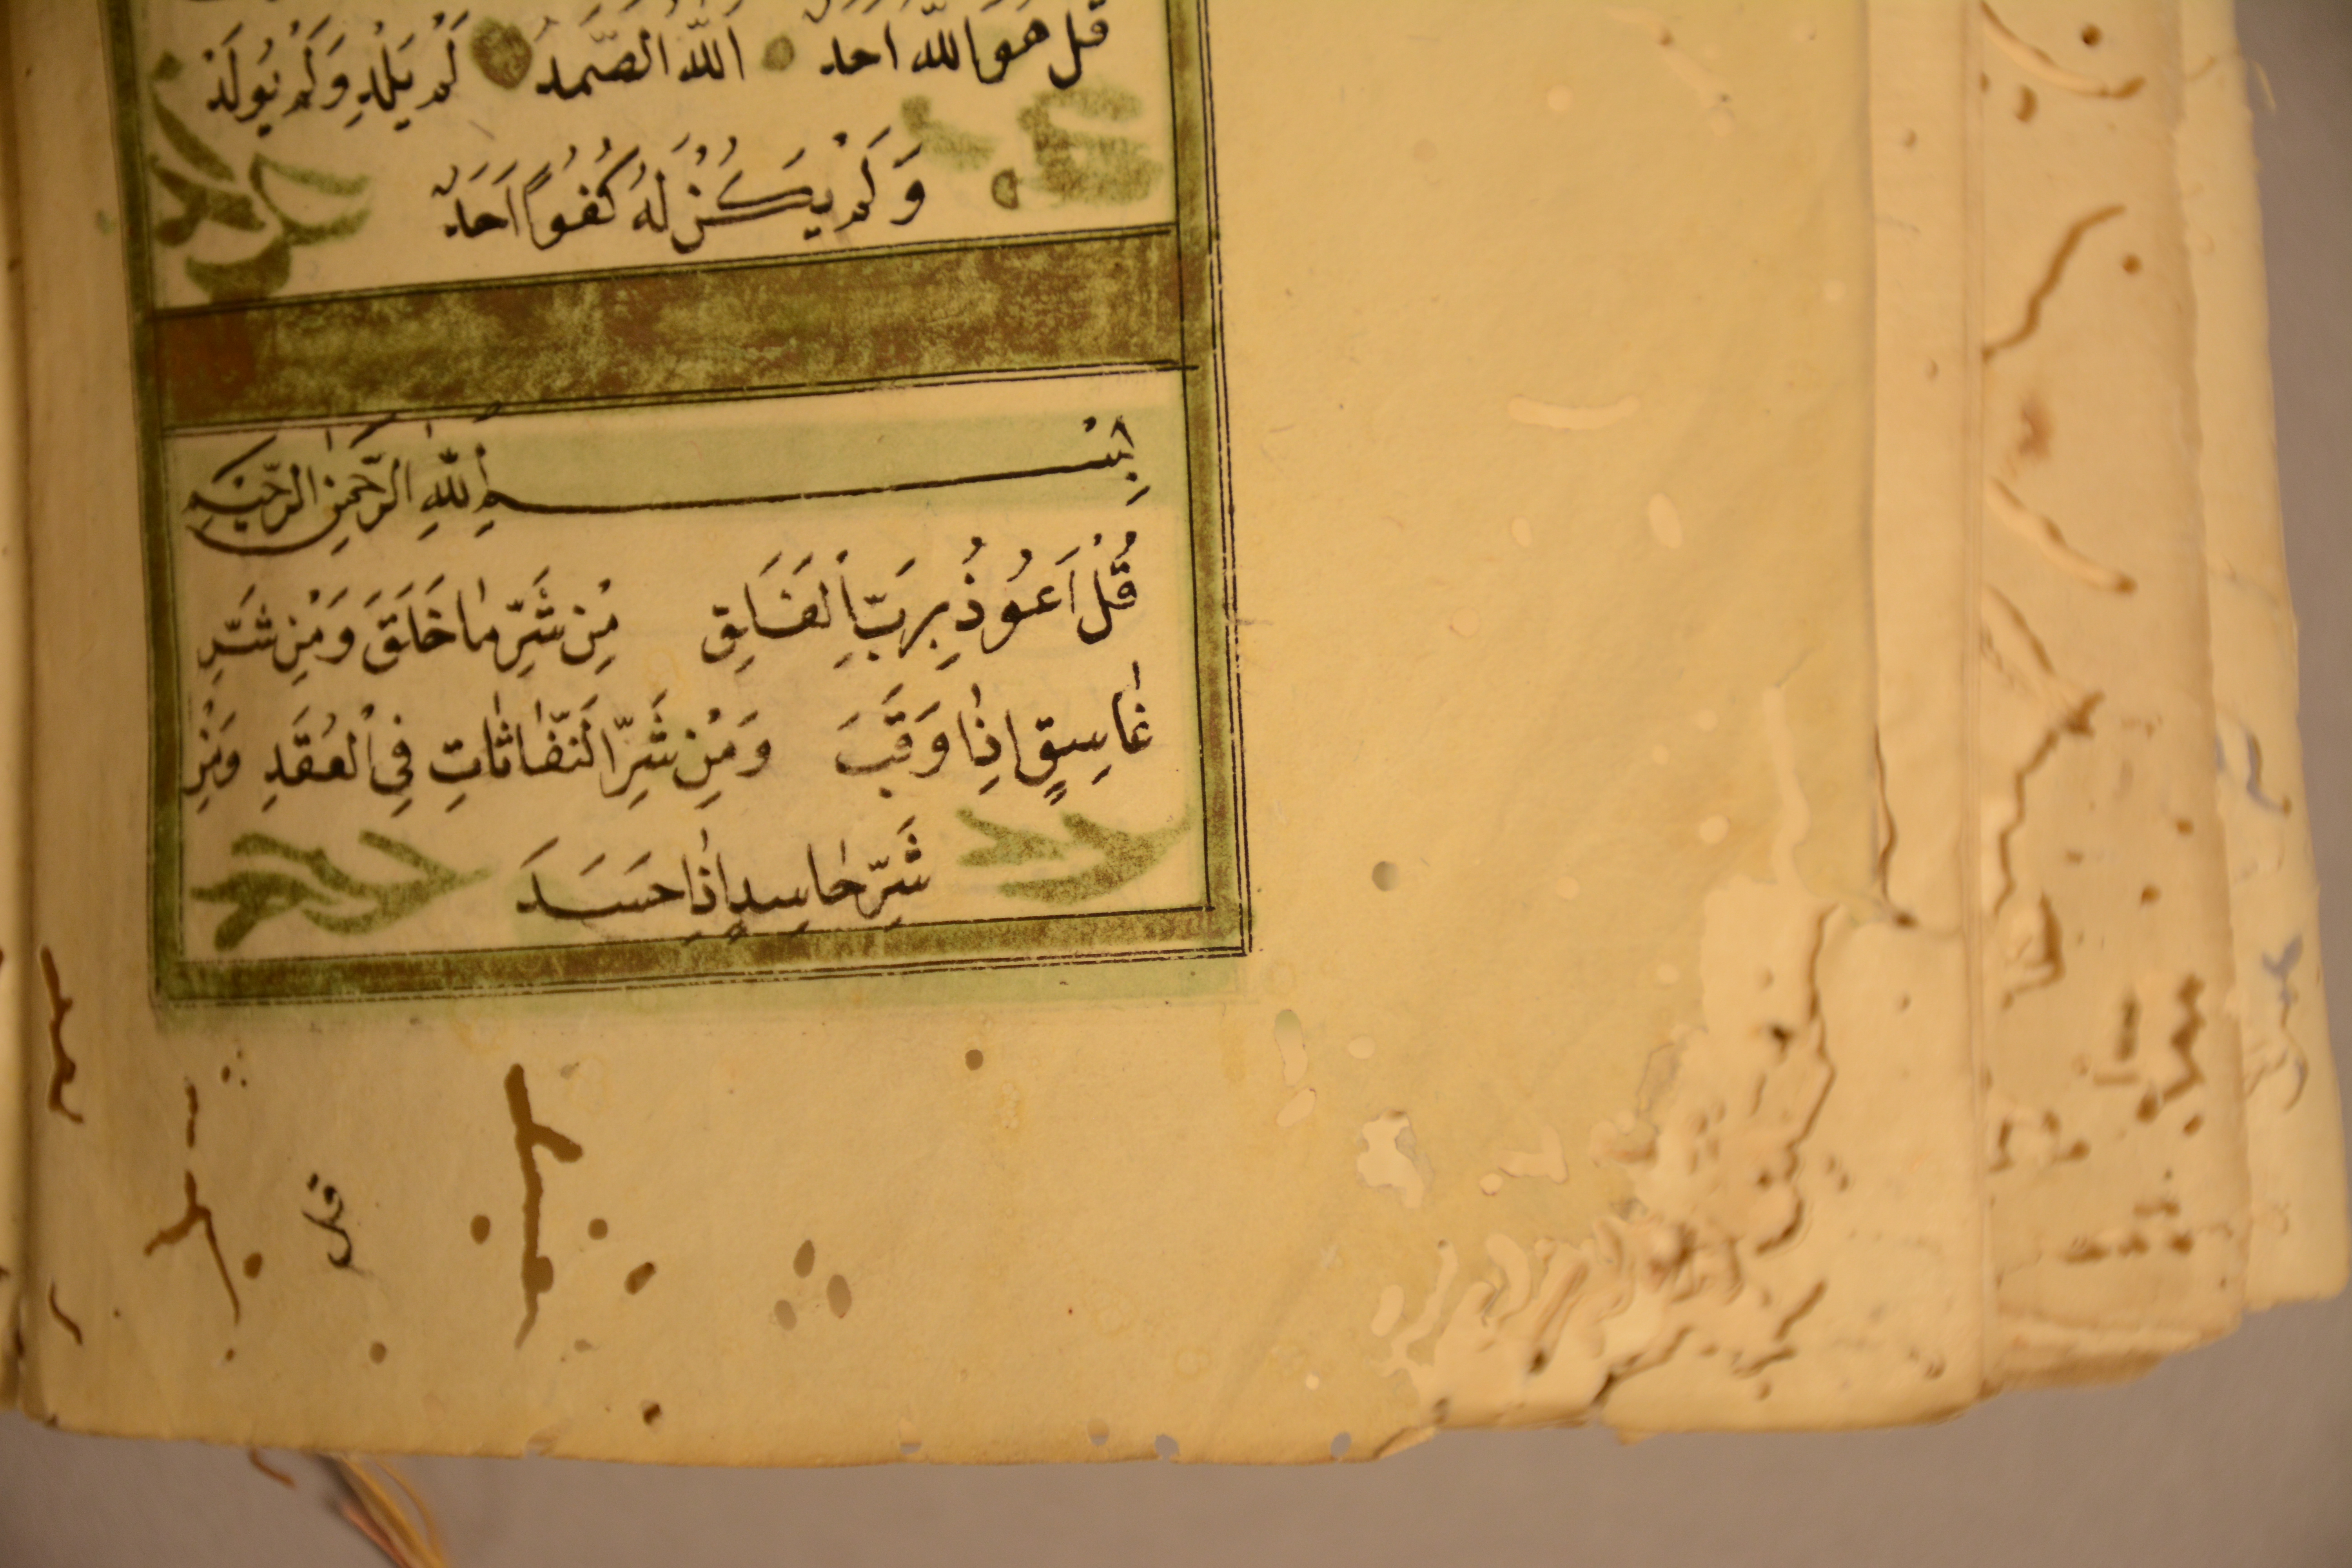 قُلْ هُوَ اللّٰهُ اَحَدٌ اَللّٰهُ الصَّمَدُ لَمْ يَلِدْ وَلَمْ يُولَدْ
وَلَمْ يَكُنْ لَهُ كُفُوًا اَحَدٌ
بِسْمِ اللّٰهِ الرَّحْمٰنِ الرَّحِيمِ
قُلْ اَعُوذُ بِرَبِّ الْفَلَقِ مِنْ شَرِّ مٰا خَلَقَ وَمِنْ شَرِّ
غٰاسِقٍ اِذٰا وَقَبَ وَمِنْ شَرِّ النَّفّٰاثٰاتِ فِي الْعُقَدِ وَمِنْ
شَرِّ حٰاسِدٍ اِذٰا حَسَدَ
قل